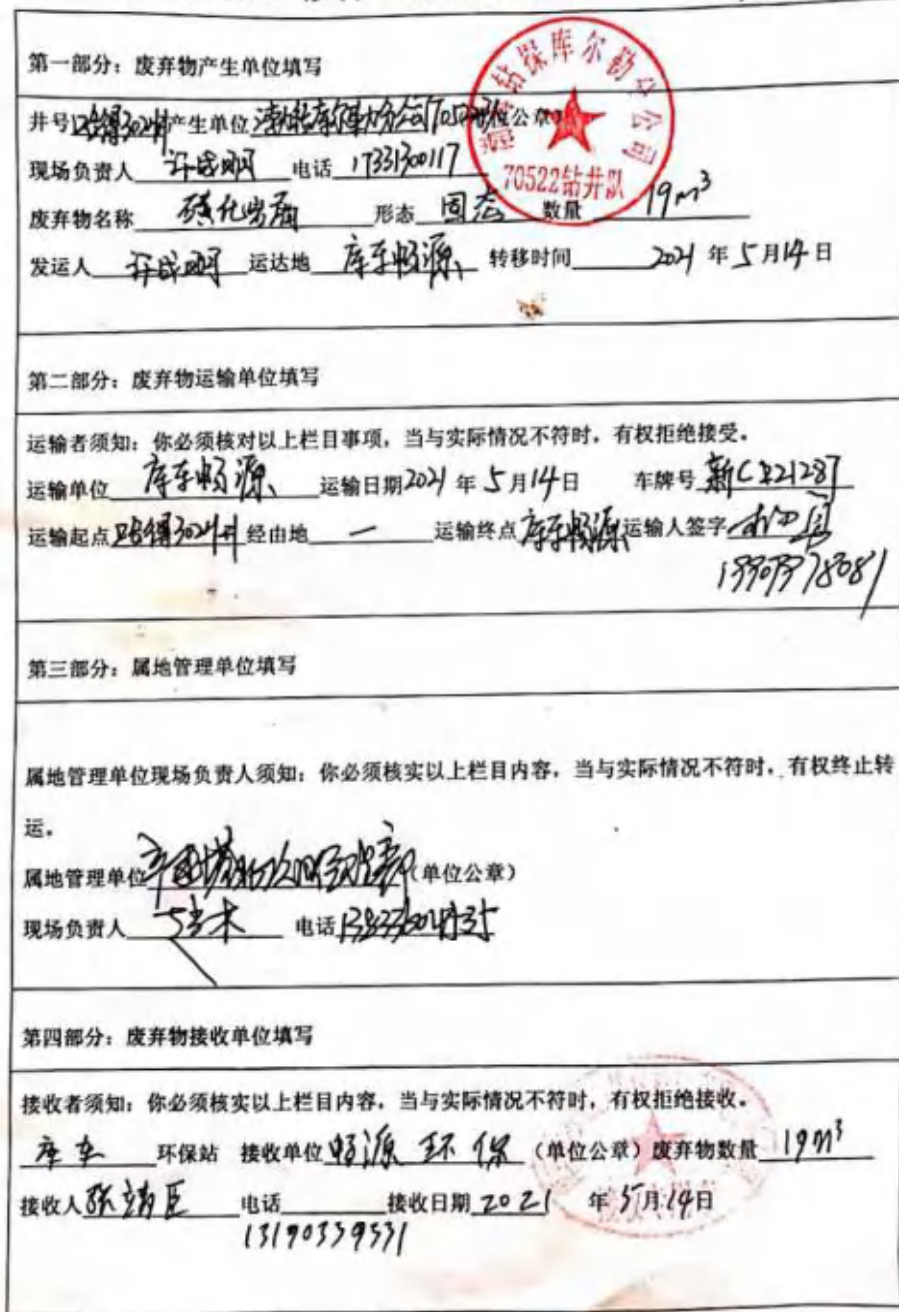 第一部分：废弃物产生单位填写
井号哈得302井产生单位 公章
钻探库尔勒分公司
70522钻井队
现场负责人 许成明 电话 17331300117
废弃物名称 磺化岩屑 形态 固态 数量 19m³
发运人 许成明 运达地 库车畅源 转移时间 2021 年 5 月 14 日
第二部分：废弃物运输单位填写
运输者须知：你必须核对以上栏目事项，当与实际情况不符时，有权拒绝接受。
运输单位 库车畅源 运输日期 2021 年 5 月 14 日 车牌号 新C
运输起点 哈得302井 经由地 一 运输终点 库车畅源 运输人签字
第三部分：属地管理单位填写
属地管理单位现场负责人须知：你必须核实以上栏目内容，当与实际情况不符时，有权终止转
运。
属地管理单位 (单位公章)
现场负责人 电话
第四部分：废弃物接收单位填写
接收者须知：你必须核实以上栏目内容，当与实际情况不符时，有权拒绝接收。
库车 环保站 接收单位 畅源环保 (单位公章) 废弃物数量 19m³
接收人 张靖臣 电话 接收日期 2021 年 5 月 14 日
13190339331